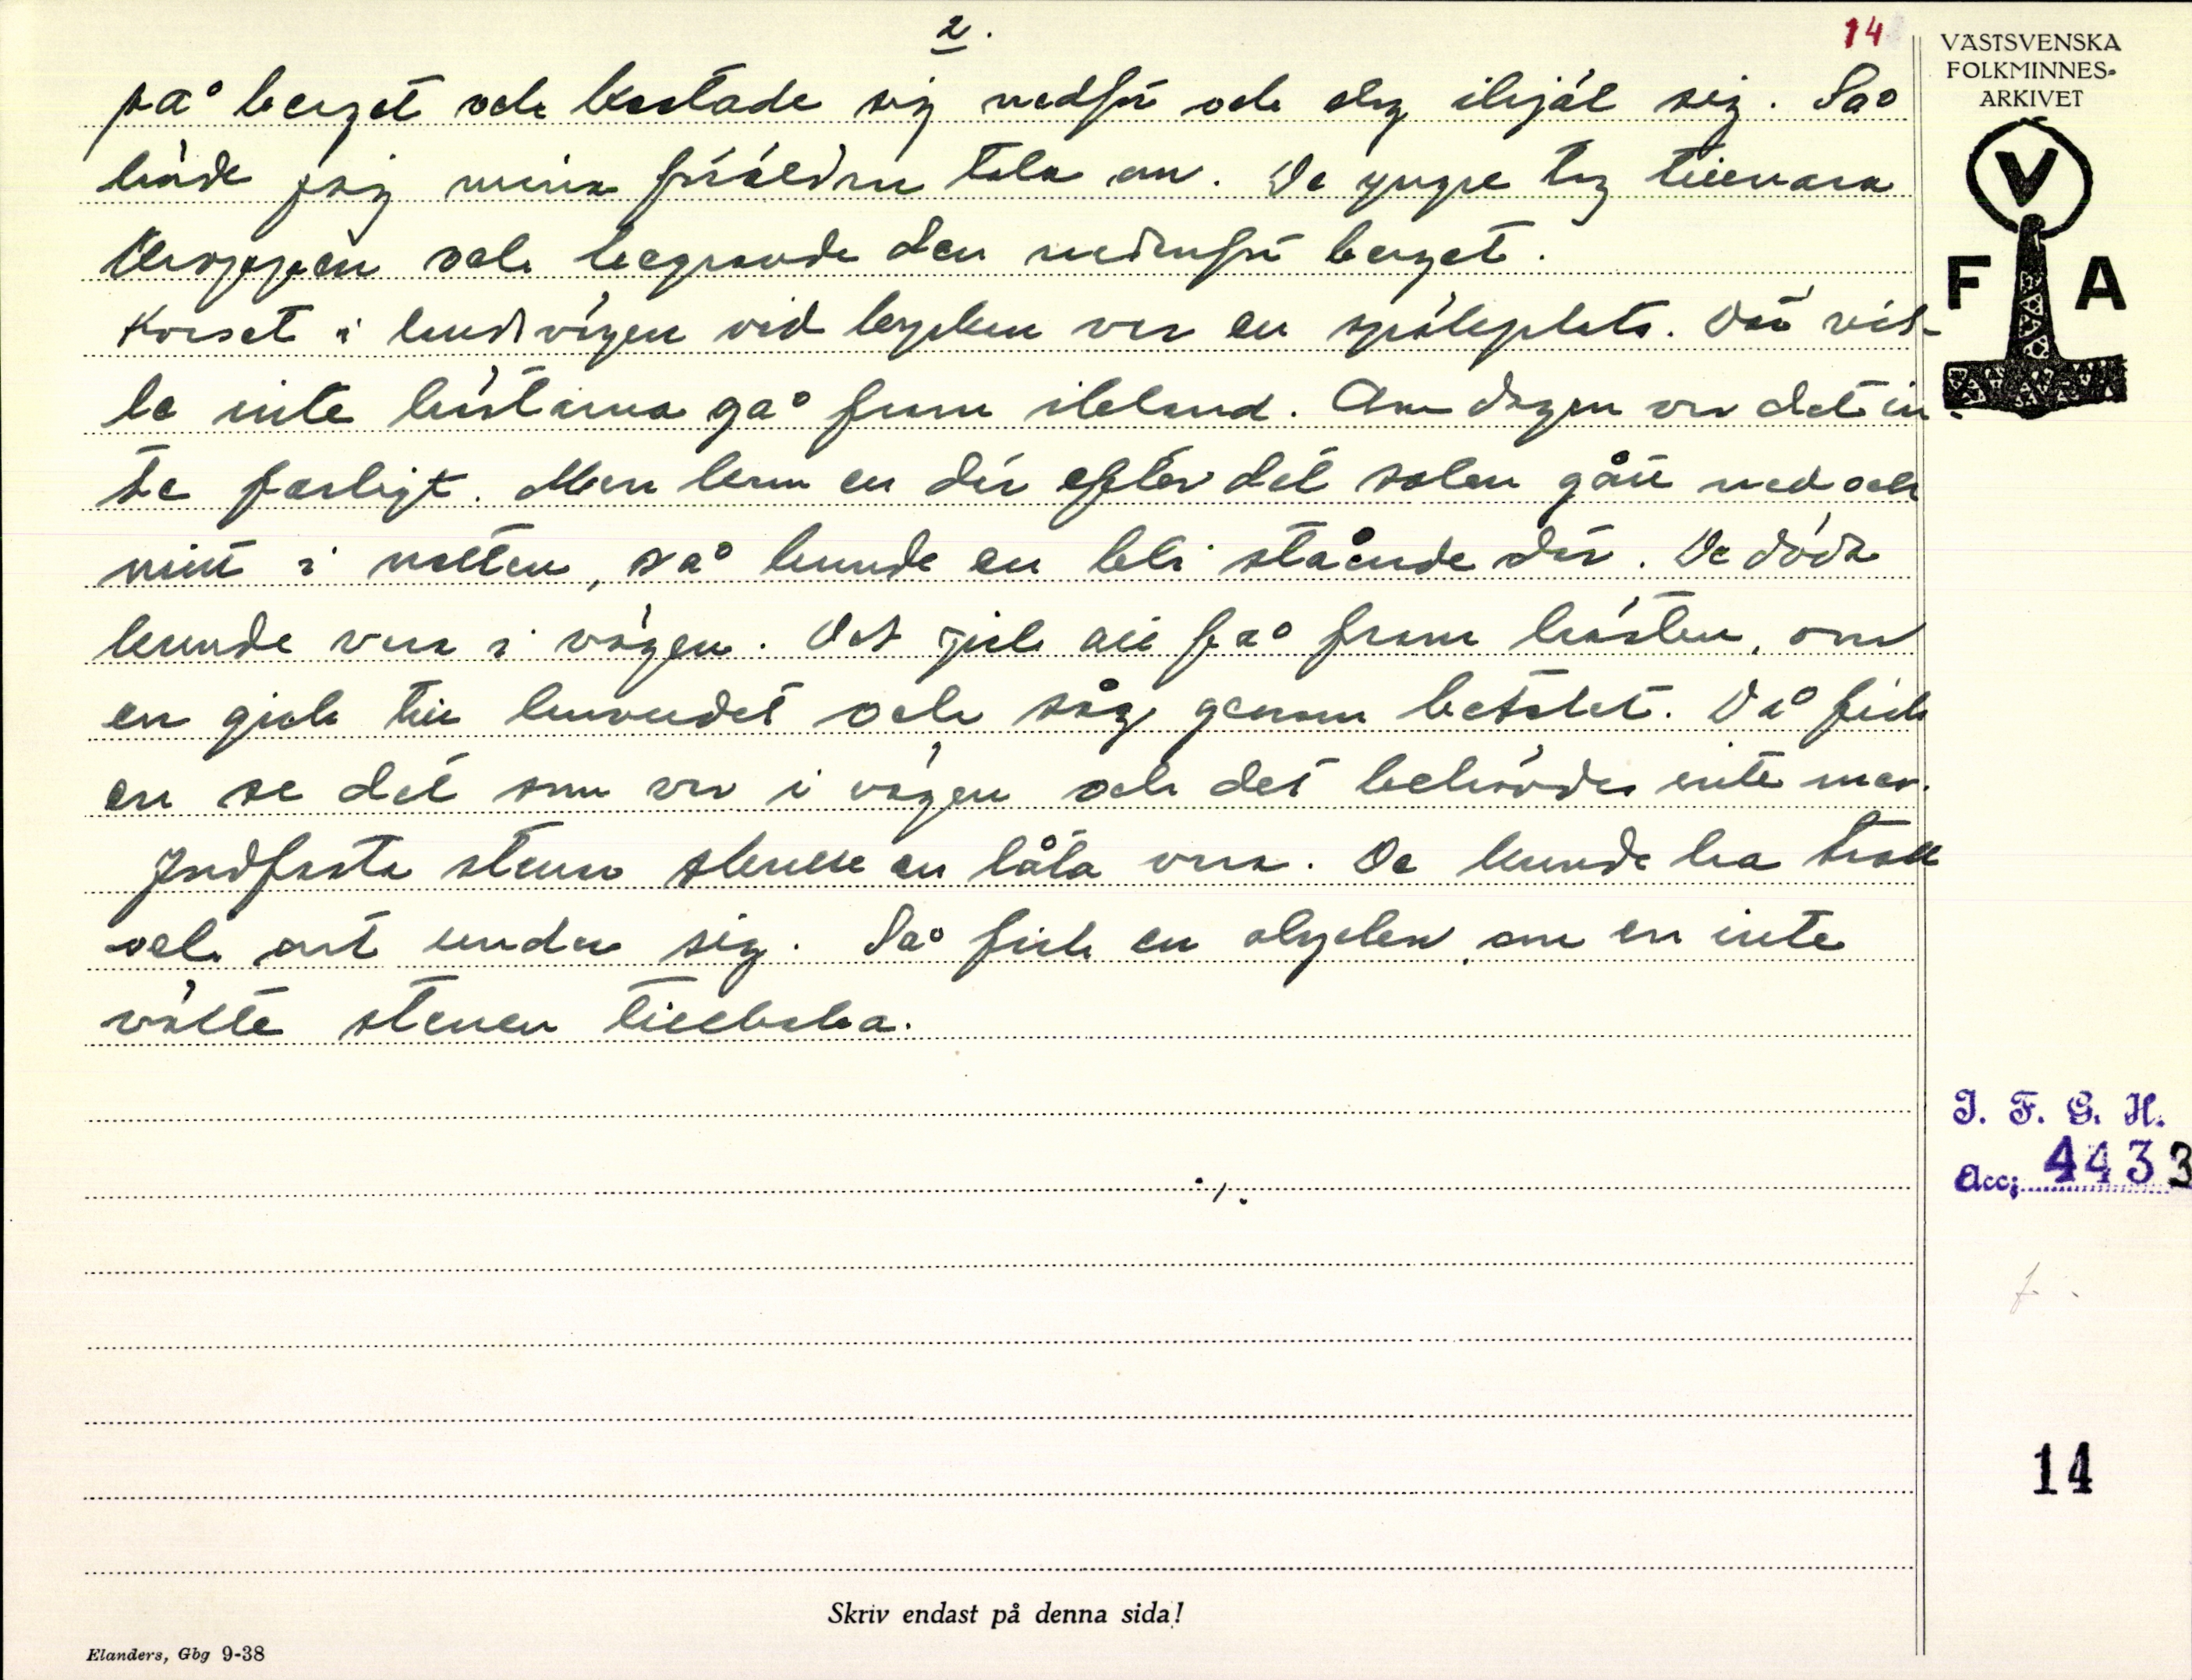 2.
14
VÄSTSVENSKA
FOLKMINNES-
ARKIVET
V
F A
på berget och kastade sig nedför och slog ihjäl sig. Så
hörde jag mina föräldrar tala om. De yngre tog tillvara
kroppen och begravde den nedanför berget.
Korset i landsvägen vid kyrkan var en spökeplats. Där vil-
le inte hästarna gå fram ibland. Om dagen var det in-
te farligt. Men kom en dit efter det solen gått ned och
mitt i natten, så kunde en bli stående där. De döda
kunde vara i vägen. Det gick att få fram hästen, om
en gick till huvudet och såg genom betslet. Då fick
en se det som var i vägen och det behövdes inte mer.
Jordfasta stenar skulle en låta vara. De kunde ha troll
och ont under sig. Så fick en olyckan, om en inte
välte stenen tillbaka.
./.
I. F. G. H.
Acc; 4433
f.
14
Skriv endast på denna sida!
Elanders, Gbg 9-38